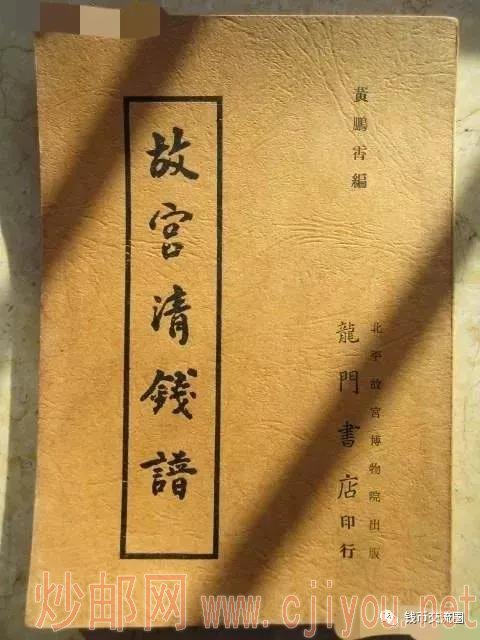 黃鵬霄編
北平故宮博物院出版
龍門書店印行
故宮清錢譜
炒邮网 www.cjiyou.net